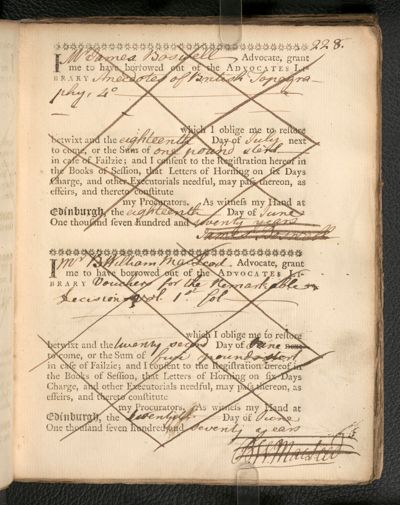 228.
I Mr James Boswell Advocate, grant
me to have borrowed out of the ADVOCATES LI-
BRARY Anecdotes of British Topogra
phy, 4o
which I oblige me to restore
betwixt and the eighteenth Day of July next
to come, or the Sum of one pound sterl
in case of Failzie; and I consent to the Registration hereof in
the Books of Session, that Letters of Horning on six Days
Charge, and other Executorials needful, may pass thereon, as
effeirs, and thereto constitute
my Procurators. As witness my Hand at
Edinburgh, the eighteenth Day of June
One thousand seven hundred and seventy years
James Boswell
I Mr William Macleod Advocate, grant
me to have borrowed out of the ADVOCATES LI-
BRARY Vouchers for the Remarkable
Decision Vol. 1st fol
which I oblige me to restore
betwixt and the twenty Day of June next
to come, or the Sum of pound sterl
in case of Failzie; and I consent to the Registration hereof in
the Books of Session, that Letters of Horning on six Days
Charge, and other Executorials needful, may pass thereon, as
effeirs, and thereto constitute
my Procurators. As witness my Hand at
Edinburgh, the twentieth Day of June
One thousand seven hundred and seventy years
Macleod